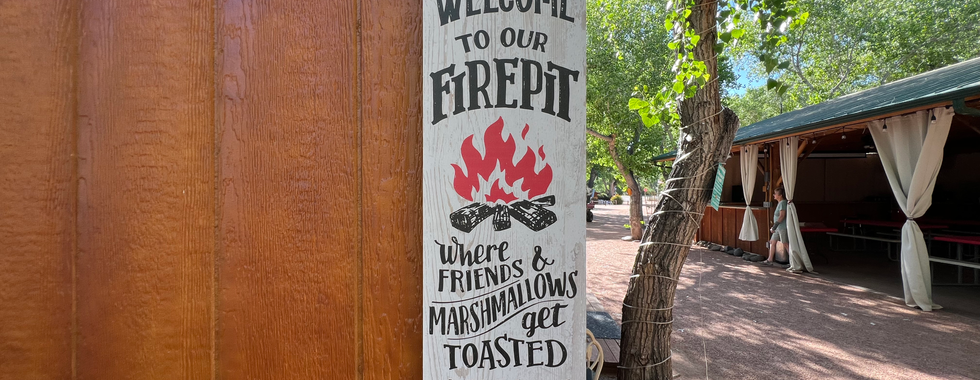 WELCOME
TO OUR
FiREPiT
where
FRIENDS &
MARSHMALLOWS
get
TOASTED